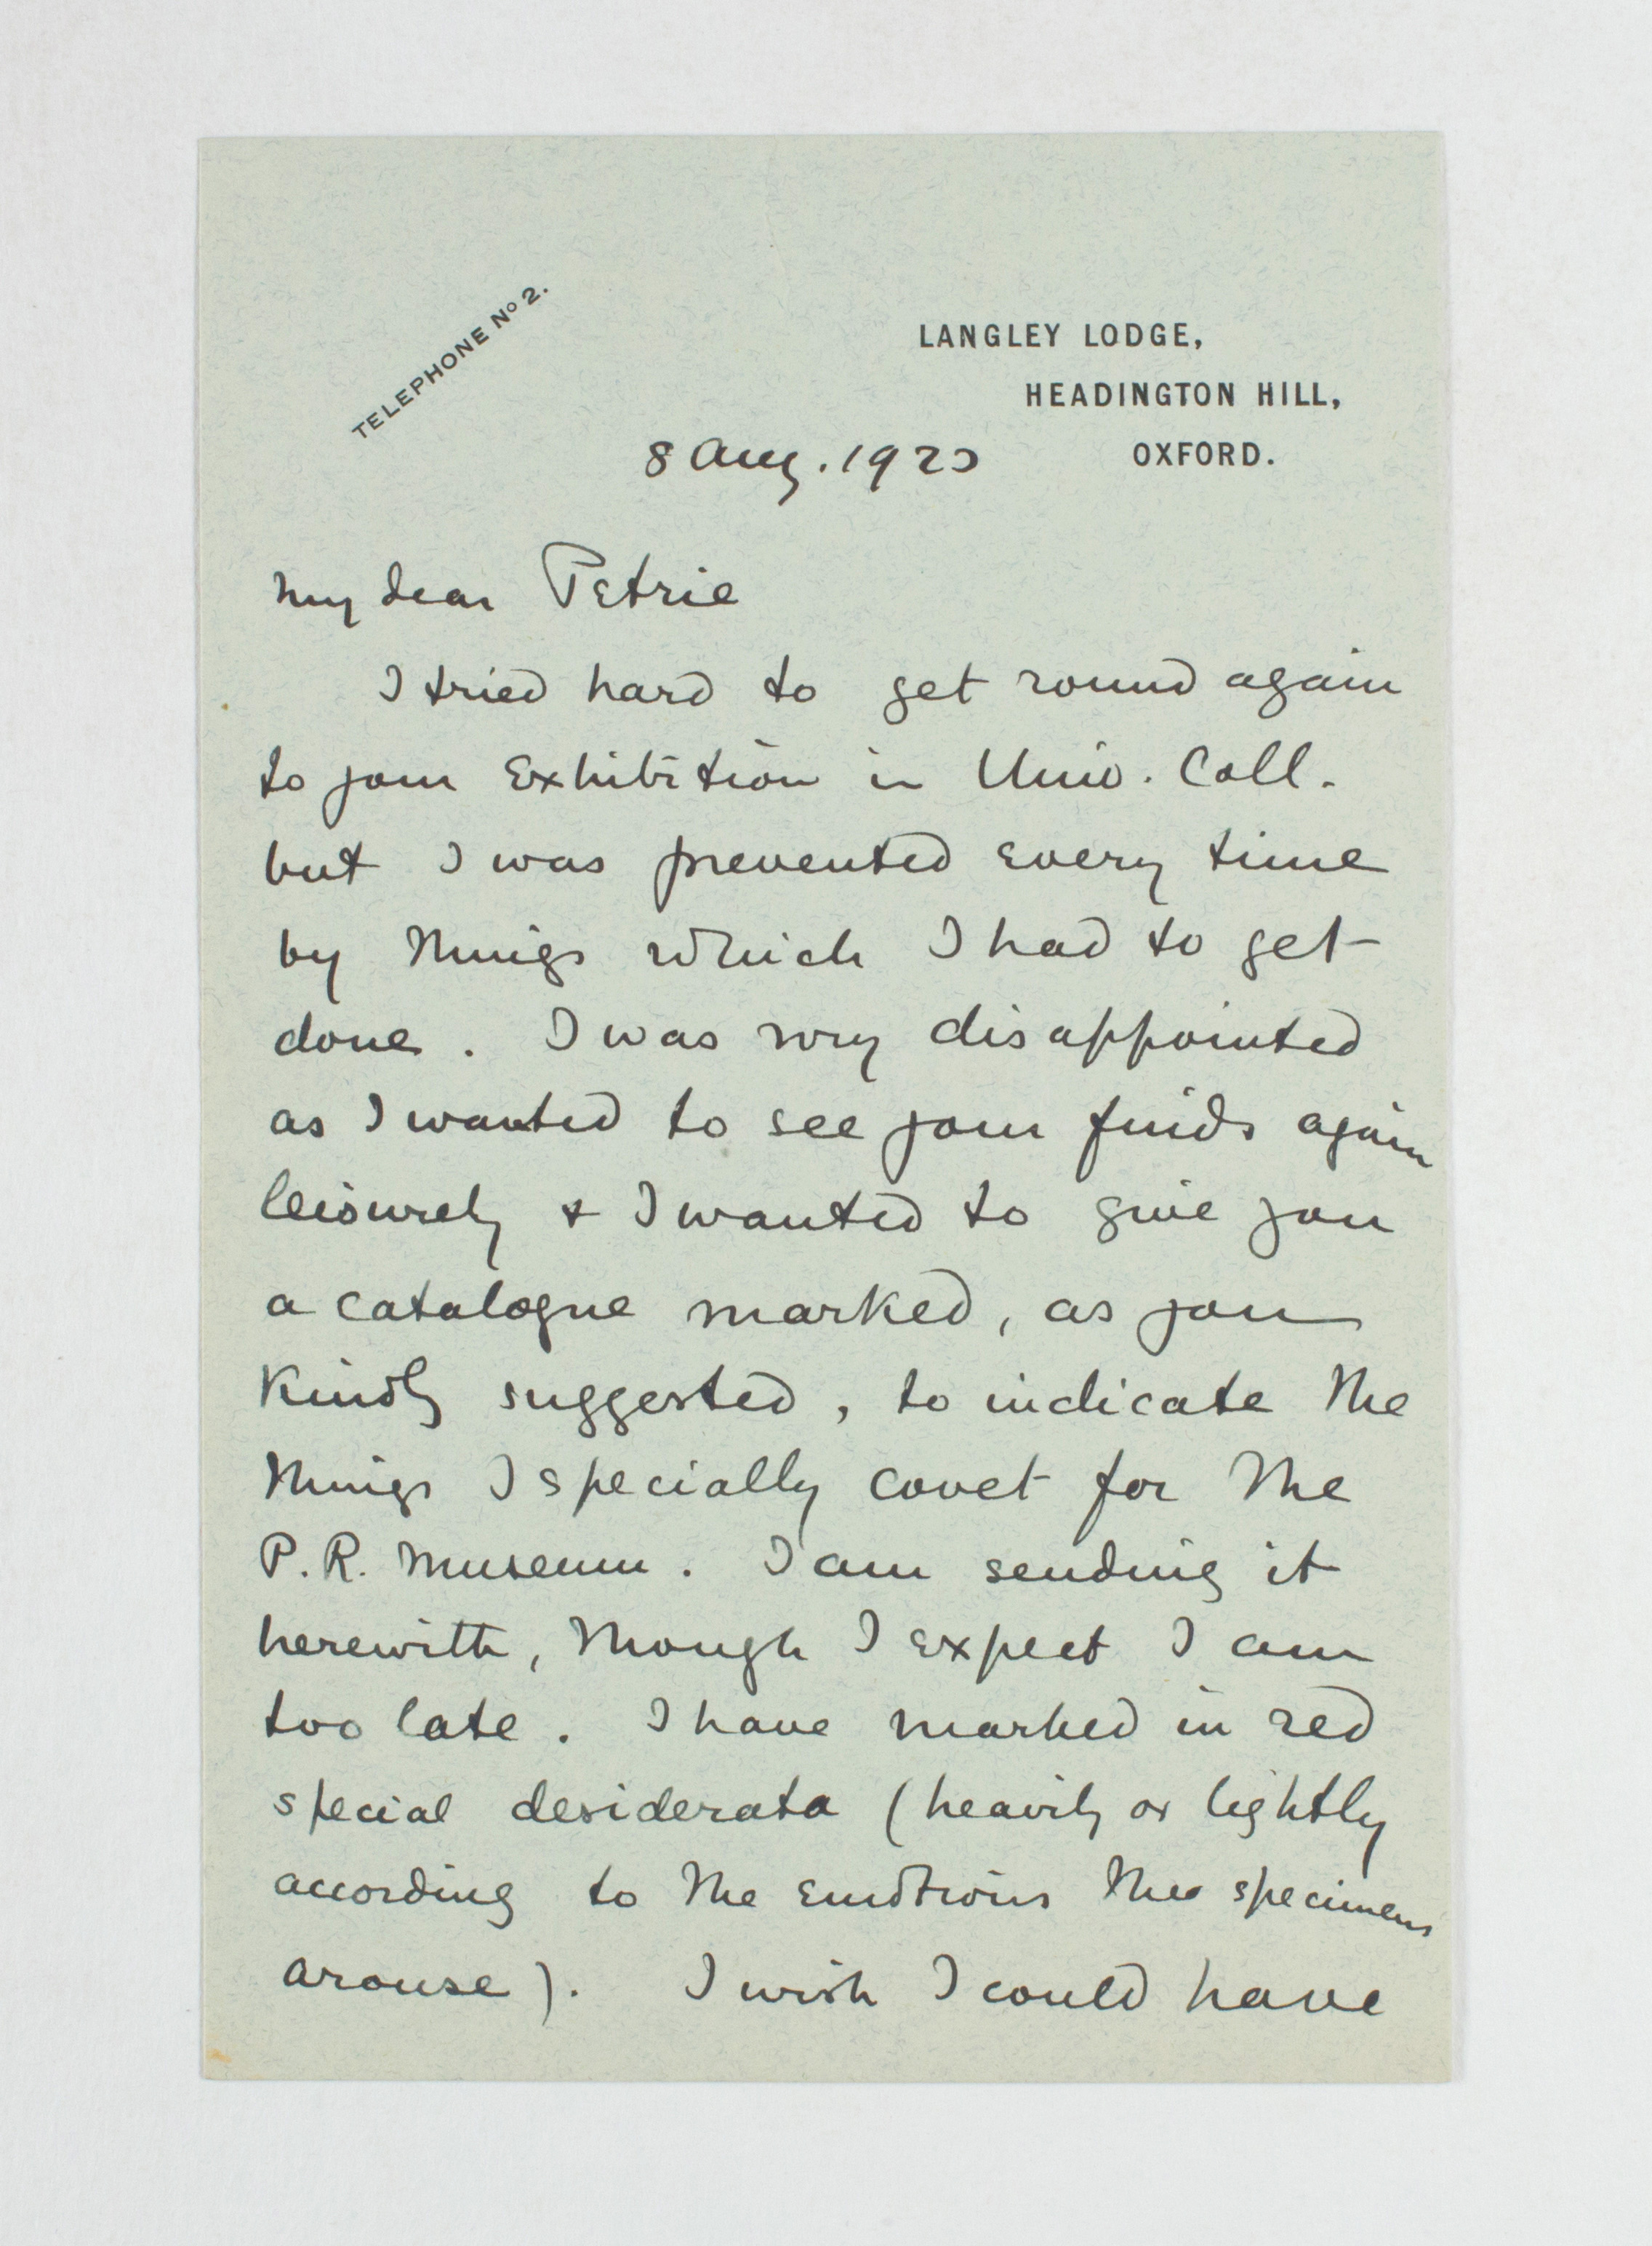 TELEPHONE Nº 2.
LANGLEY LODGE,
HEADINGTON HILL,
OXFORD.
8 Aug.
My dear Petrie
I tried hard to get round again
to your Exhibition in Univ. Coll.
but I was prevented every time
by things which I had to get
done. I was very disappointed
as I wanted to see your finds again
leisurely & I wanted to give you
a catalogue marked, as you
kindly suggested, to indicate the
things I specially covet for the
P.R. Museum. I am sending it
herewith, though I expect I am
too late. I have marked in red
special desiderata (heavily or lightly
according to the emotions the specimens
arouse). I wish I could have